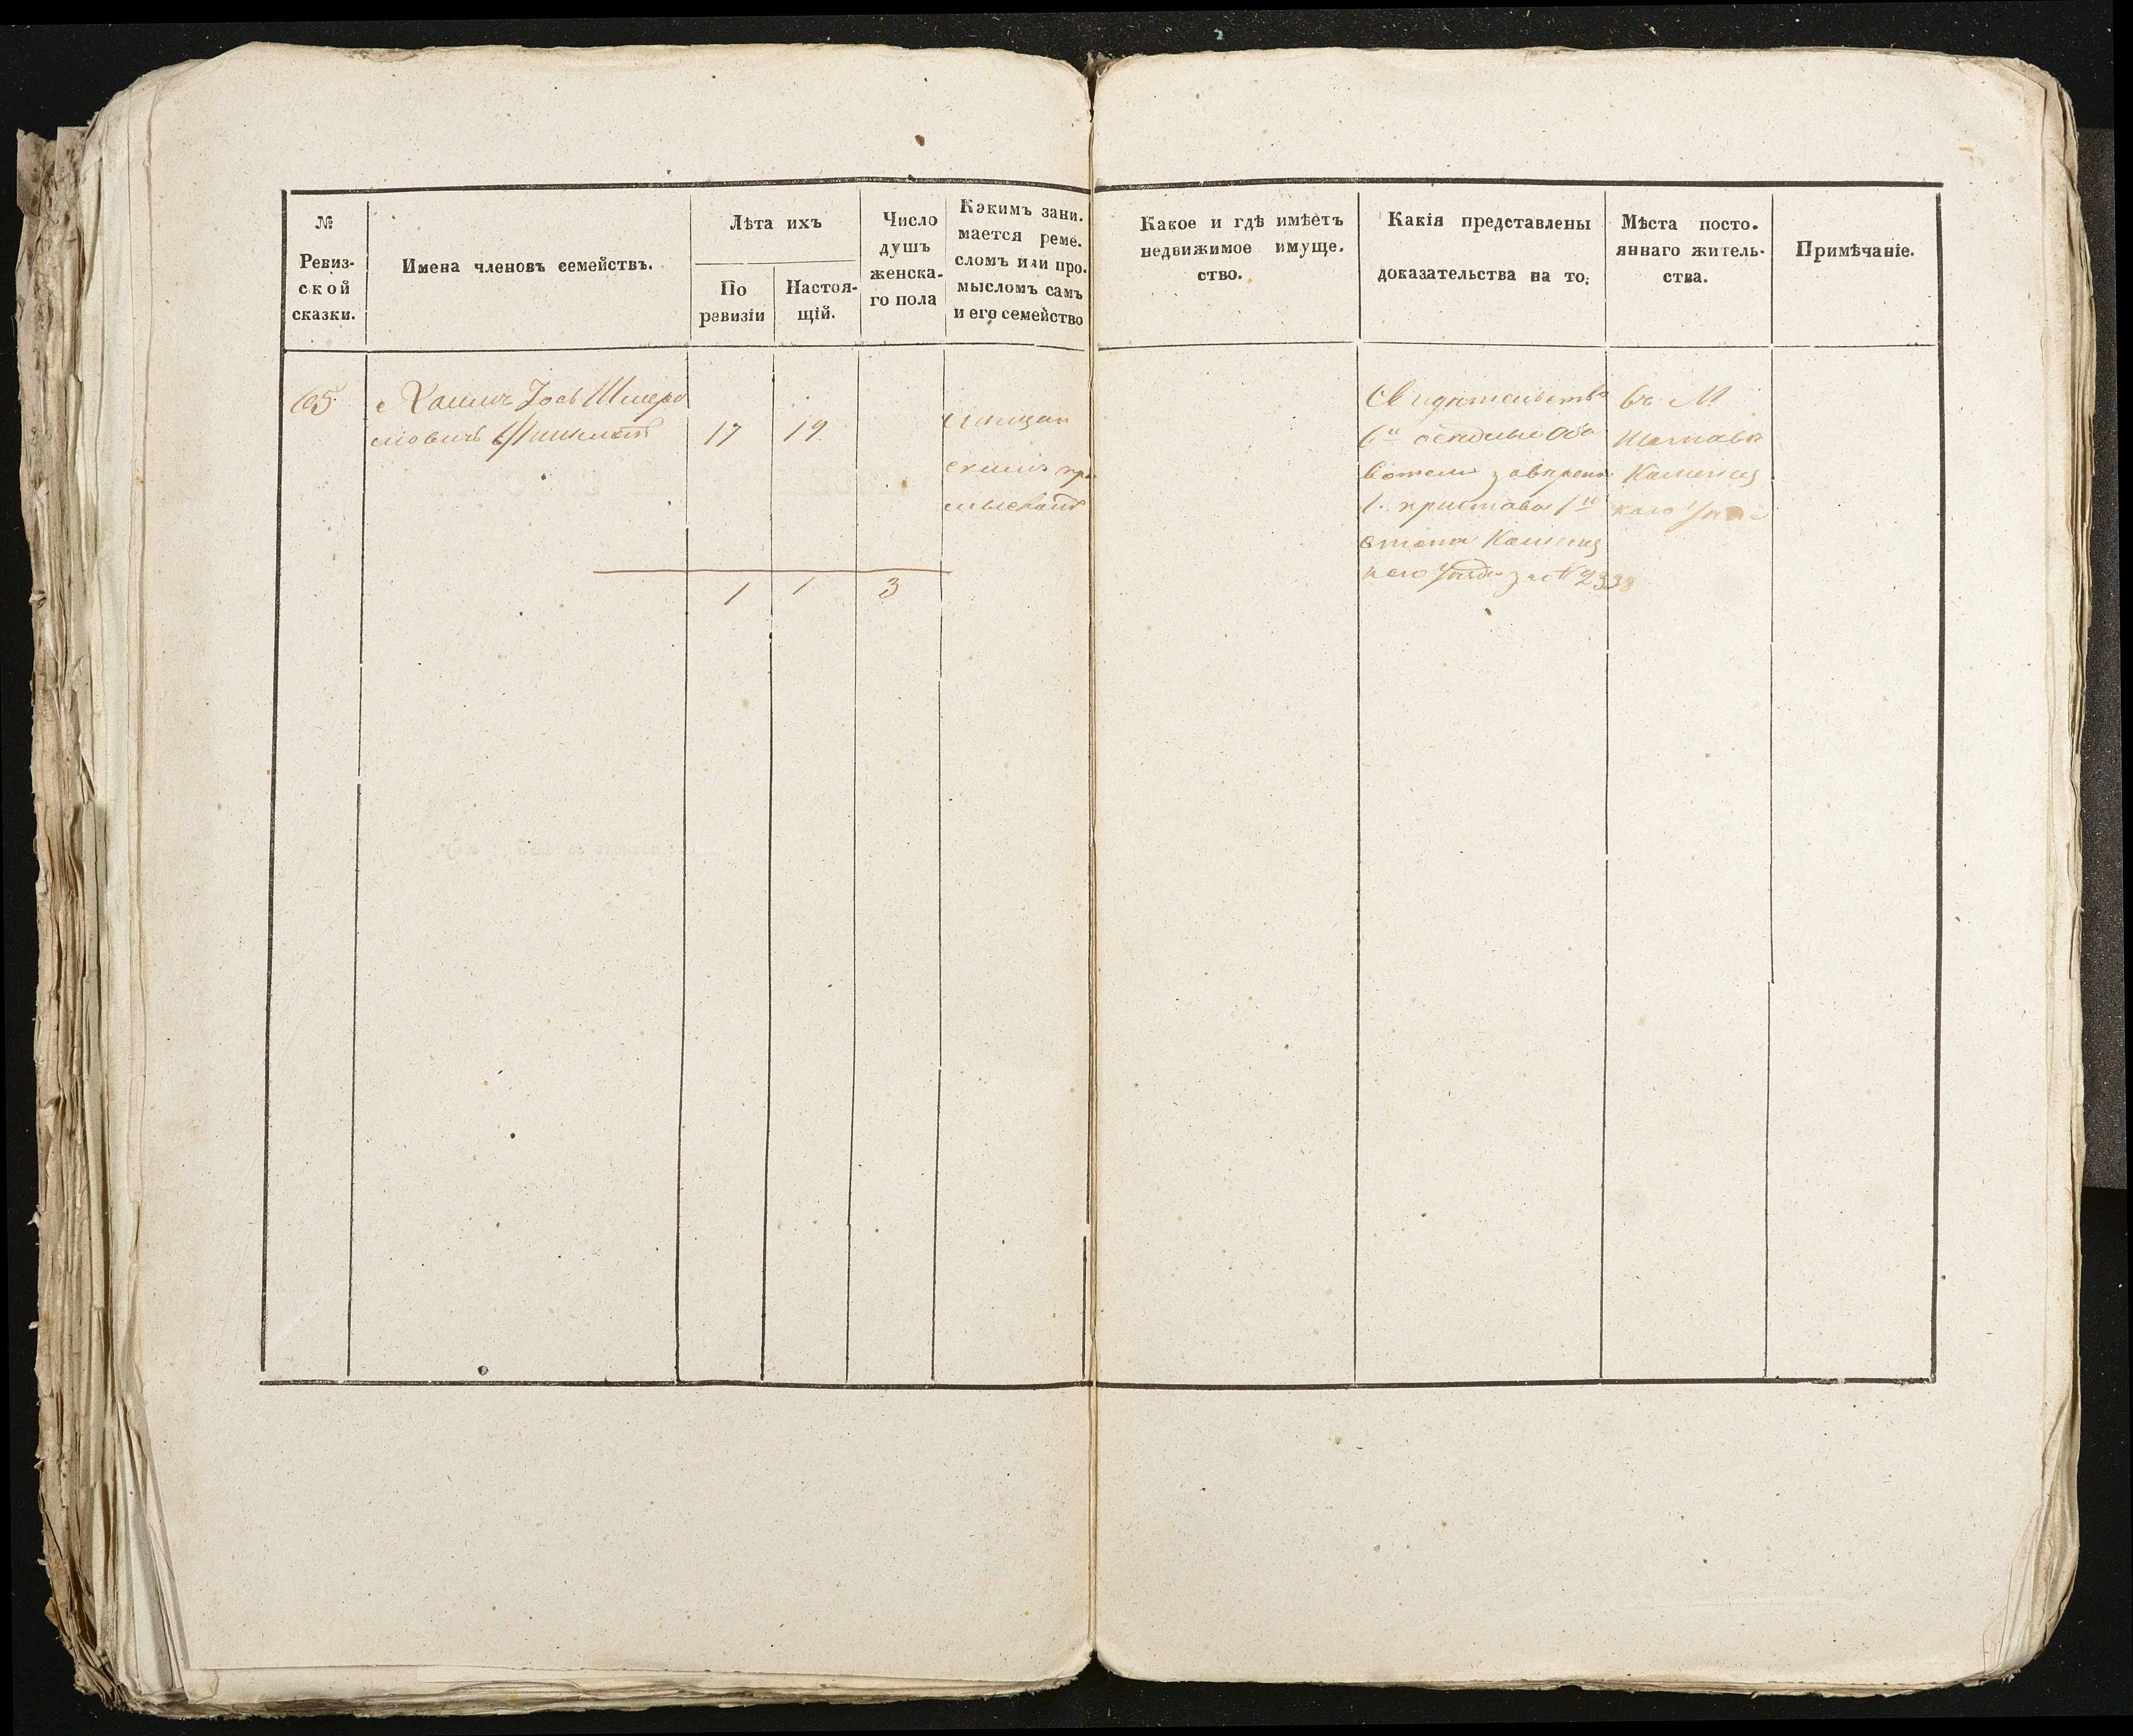 №
Ревиз-
ской
сказки.
Имена членовъ семействъ.
Лѣта ихъ
По
ревизіи
Настоя-
щій.
Число
душъ
женска-
го пола
Какимъ зани-
мается реме-
сломъ или про-
мысломъ самъ
и его семейство
Какое и гдѣ имѣетъ
недвижимое имуще-
ство.
Какія представлены
доказательства на то.
Мѣста посто-
яннаго житель-
ства.
Примѣчаніе.
65
Іось
17 19
мѣщан
скимъ про
мысломъ
Свидѣтельство
6и осѣдлые обы
ватели завѣрено
г. пристава 1го
стана Камениц
каго уѣзда за № 2338
въ М
Шатавѣ
Камениц
каго
1 1 3